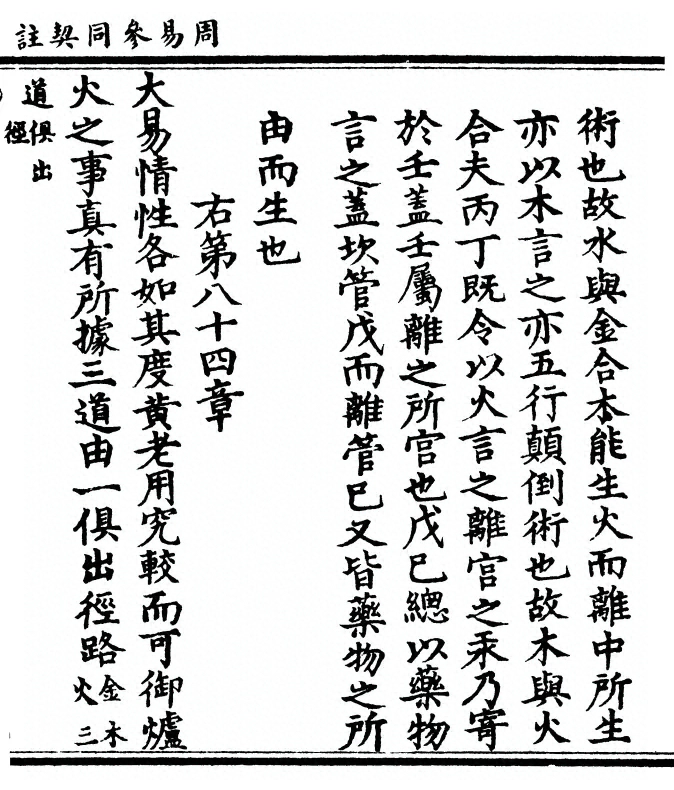 周易參同契註
術也故水與金合木能生火而離中所生
亦以木言之亦五行顛倒術也故木與火
合夫丙丁既令以火言之離宮之汞乃寄
於壬蓋壬屬離之所宮也戊己總以藥物
言之蓋坎管戊而離管己又皆藥物之所
由而生也
右第八十四章
大易情性各如其度黃老用究較而可御爐
火之事真有所據三道由一俱出徑路
金木
火三
道俱出
徑